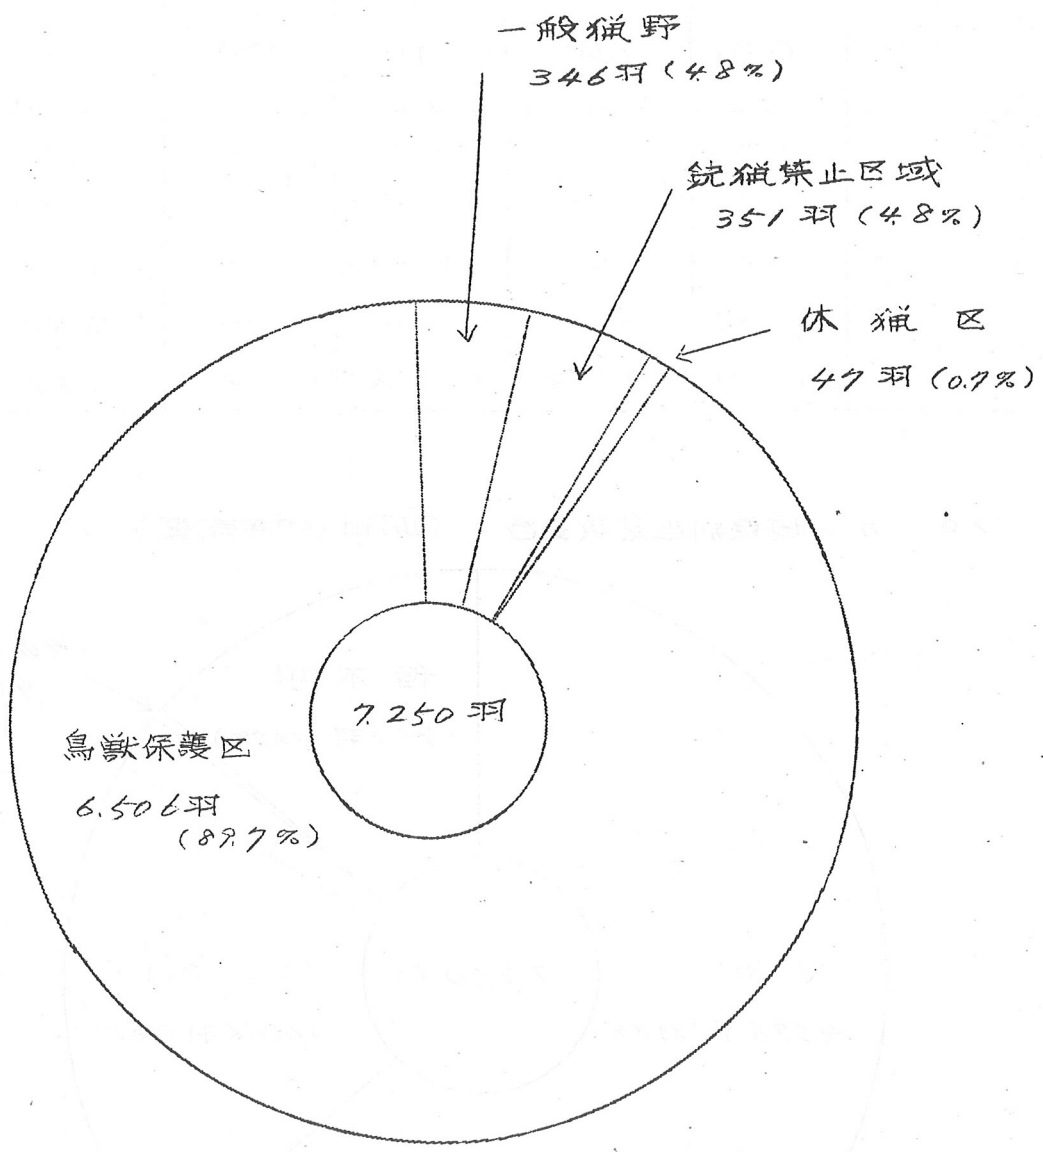 一般猟野
346羽(4.8%)
銃猟禁止区域
351羽(4.8%)
休猟区
47羽(0.7%)
7.250羽
鳥獣保護区
6.506羽
(89.7%)